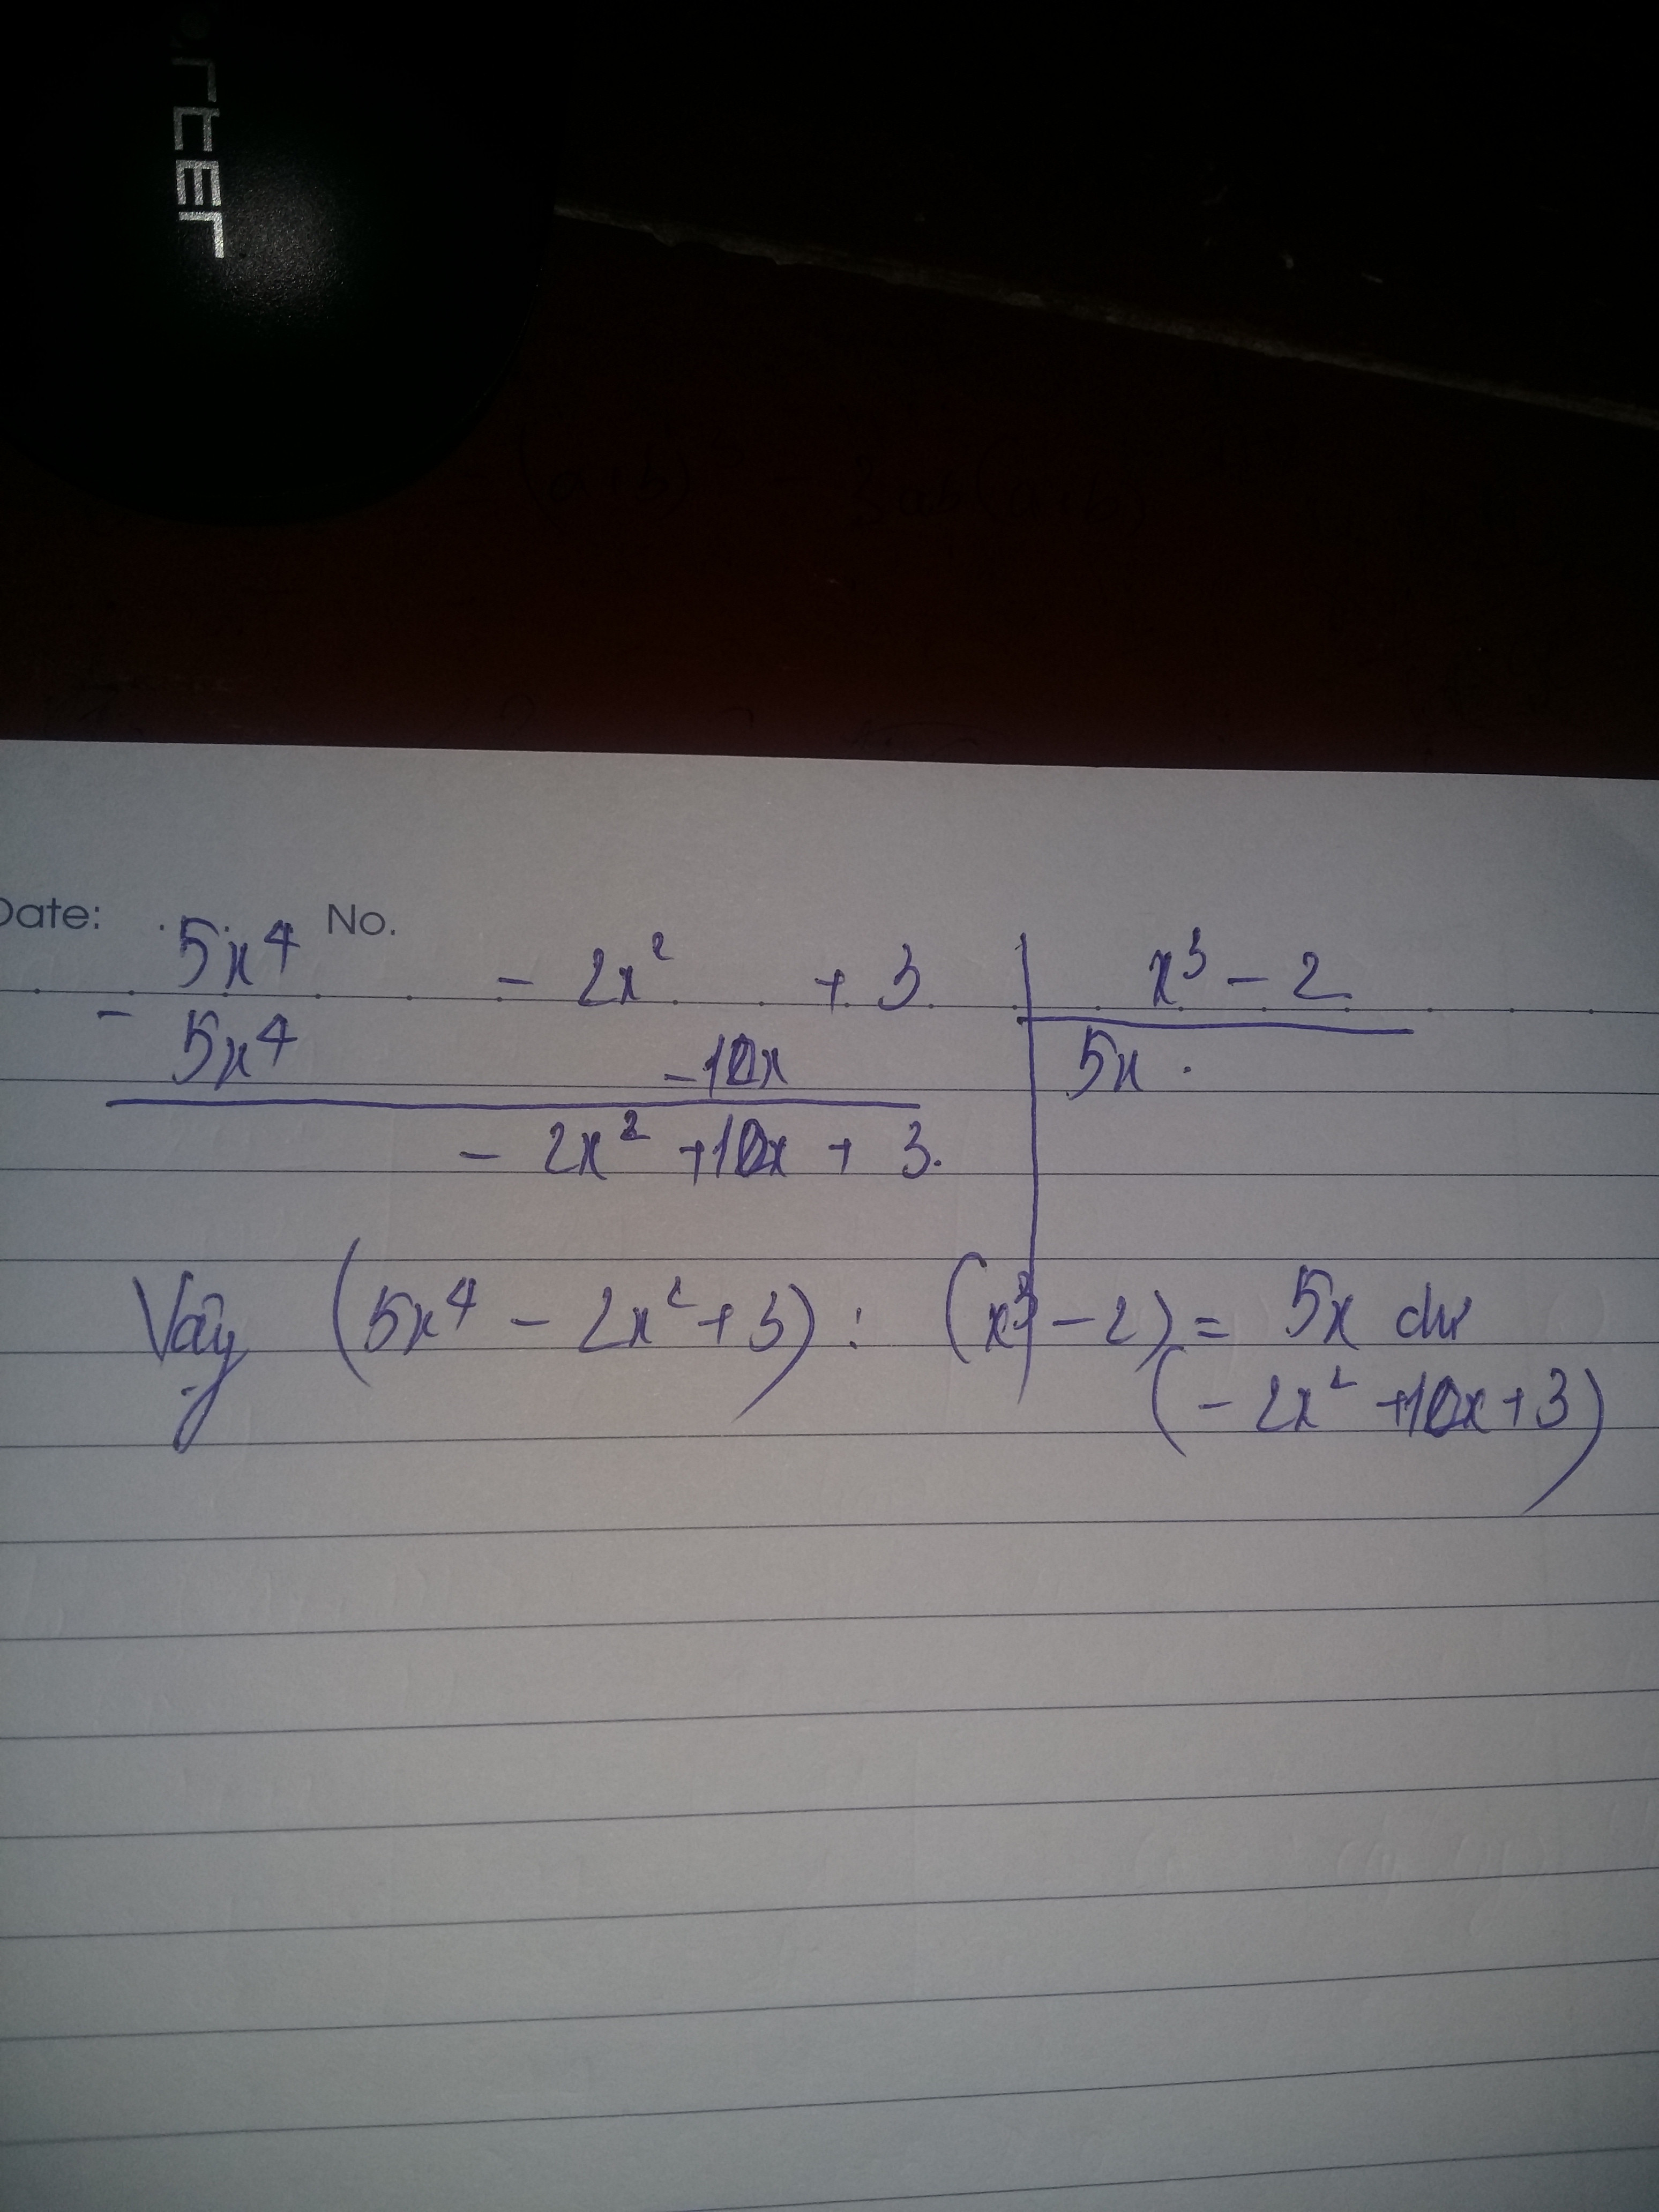 Date: No.
5x⁴ - 2x² + 3 | x³ - 2
- 5x⁴ - 10x | 5x
- 2x² + 10x + 3.
Vậy (5x⁴ - 2x² + 3) : (x³ - 2) = 5x dư
(- 2x² + 10x + 3)